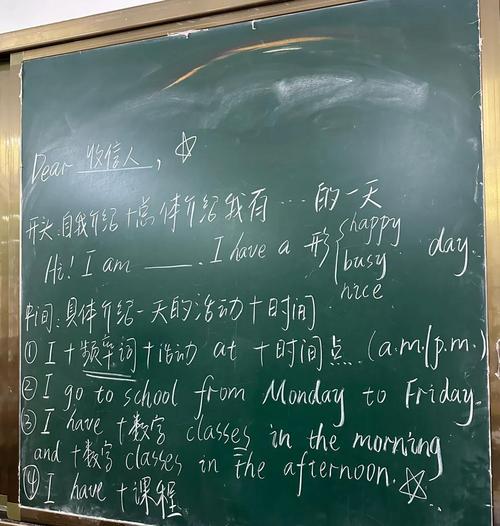 Dear 收信人,
开头:自我介绍+总体介绍我有…的一天
Hi! I am ____. I have a 形{happy busy nice day.
中间:具体介绍一天的活动+时间
① I+频率词+活动 at +时间点.(a.m./p.m.)
② I go to school from Monday to Friday.
③ I have +数字 classes in the morning
and +数字 classes in the afternoon.
④ I have +课程